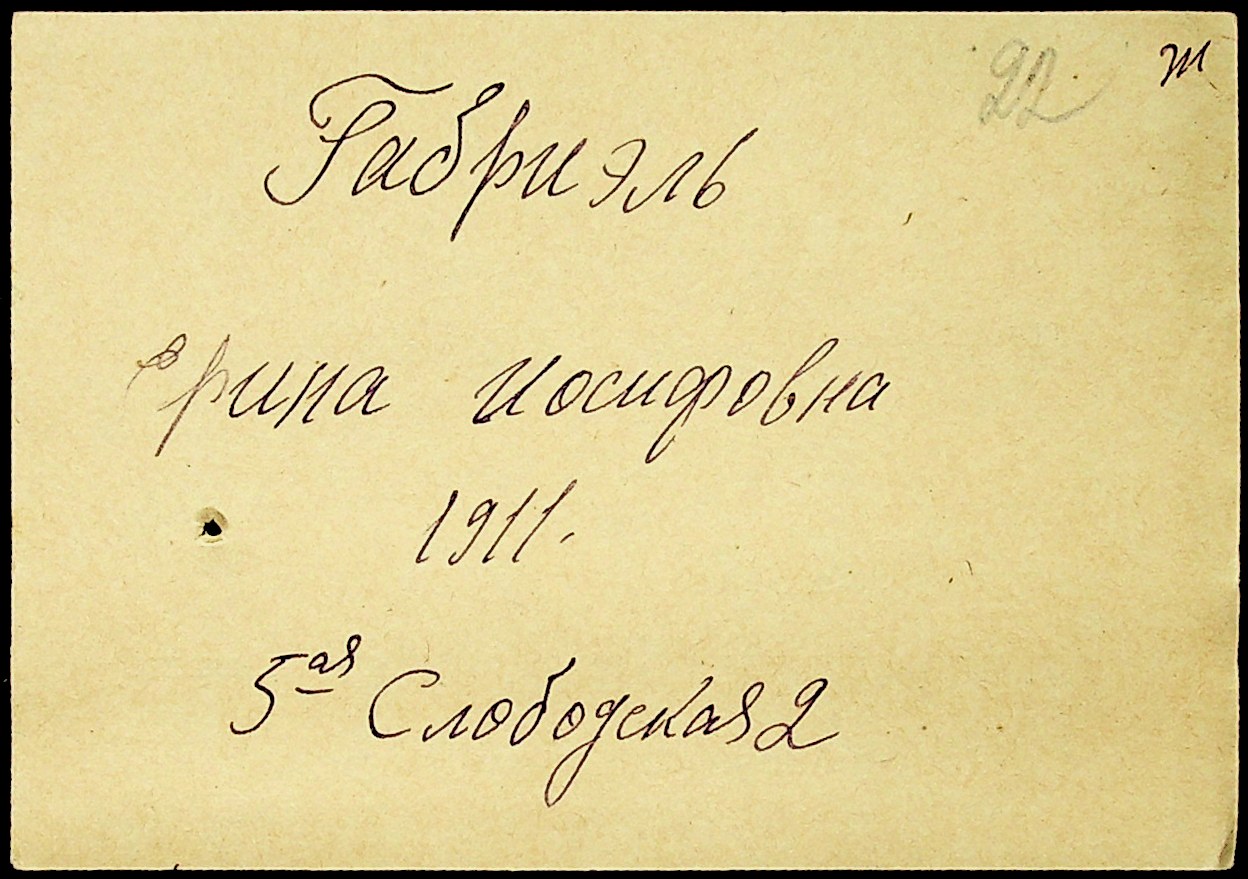 22 ж
Габриэль
Ерина Иосифовна
1911.
5ая Слободская 2